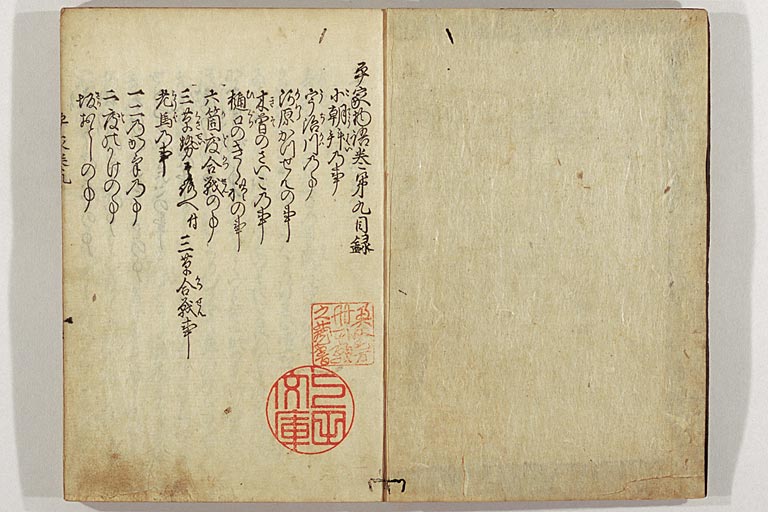 平家物語巻第九目録
小朝拝乃事
宇治川乃事
河原かつせんの事
木曽のさいこ乃事
樋口のきられの事
六箇度合戦の事
三草勢そろへ付三草合戦事
老馬乃事
一二乃かけ乃事
二度のかけの事
坂おとしの事
文庫